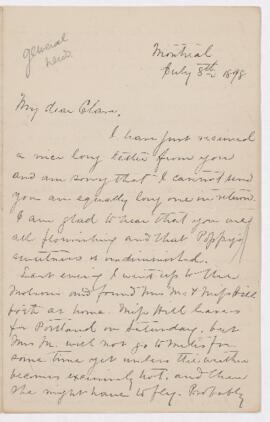 general
news.
Montreal
July 8th 1898
My dear Clara,
I have just received
a nice long letter from you
and am sorry that I cannot send
you an equally long one in return.
I am glad to hear that you are
all flourishing and that Poppy's
sweetness is undiminished.
Last evening I went up to the
and found Mrs M. & Miss Hill
both at home. Miss Hill leaves
for Portland on Saturday, but
Mrs M. will not go to Metis for
some time yet unless the weather
becomes excessively hot, and then
she might have to fly. Probably